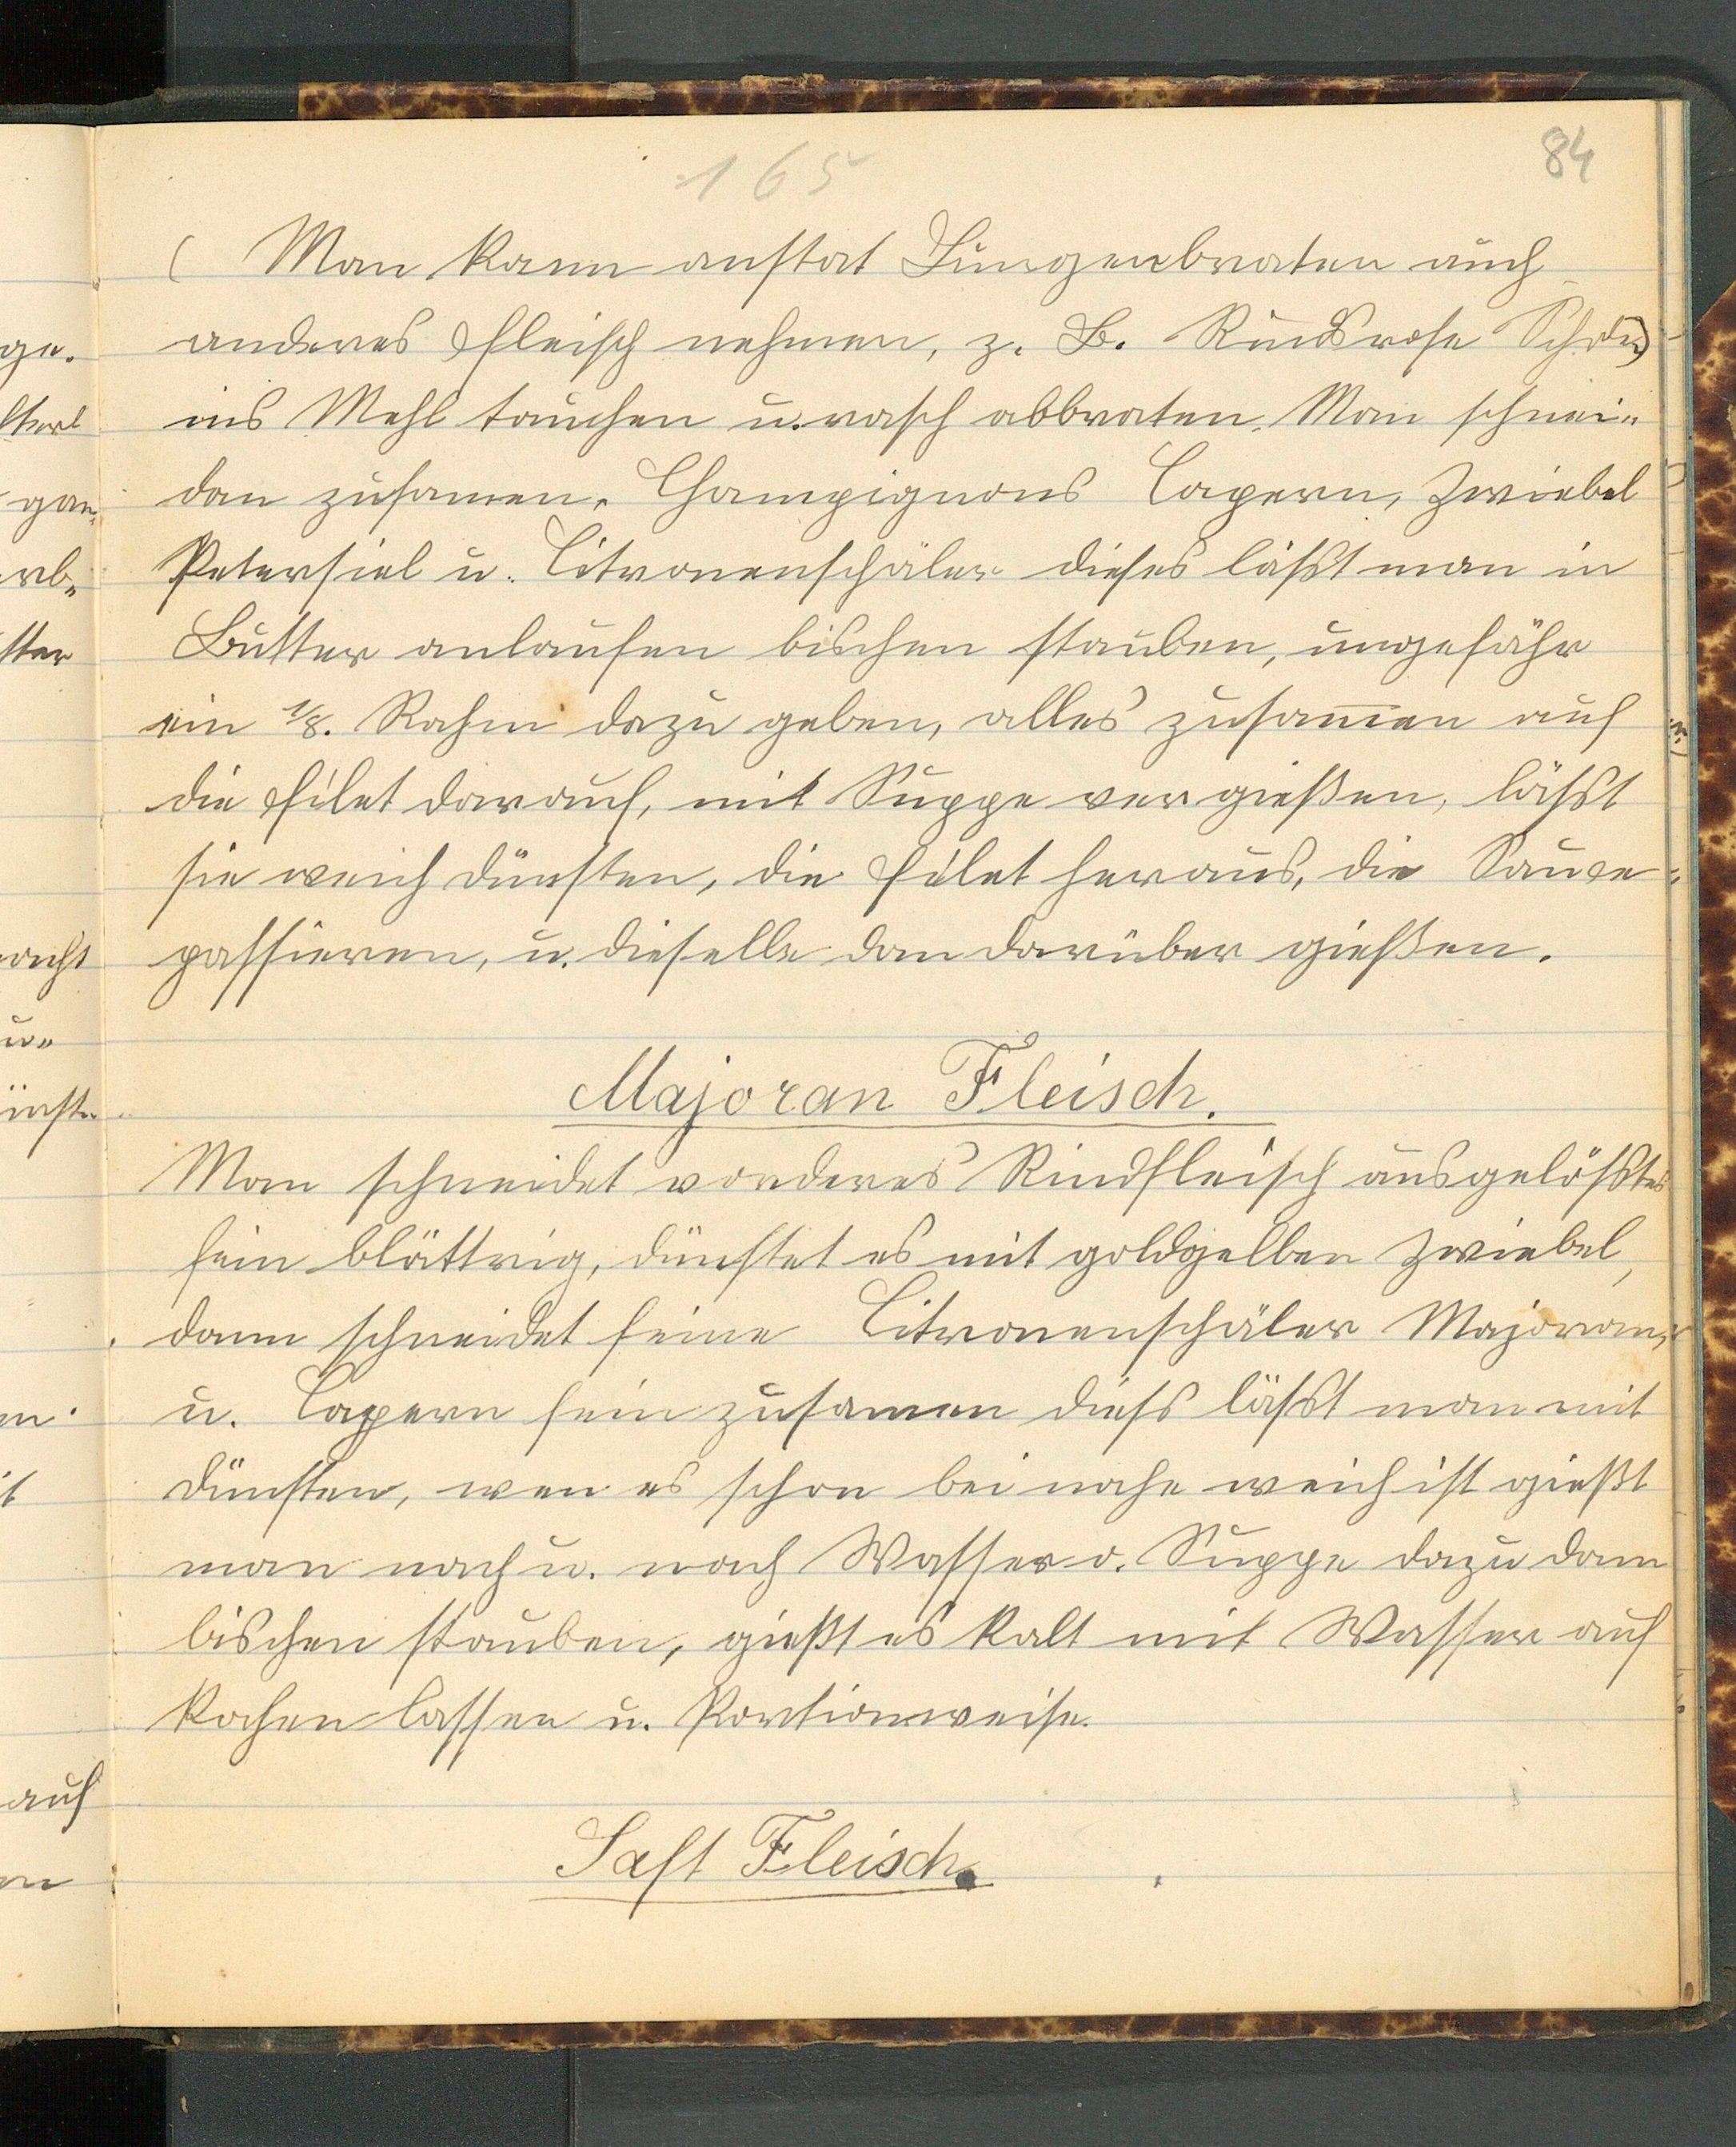 165
84
( Man kann anstat Lungenbraten auch
anderes Fleisch nehmen, z. B. Rindsrose
ins Mehl tauchen u. rasch abbraten. Man schnei-
dan zusamen. Champignons Capern, Zwiebel
Petersiel u. Citronenschäler dieses läßt man in
Butter anlaufen bischen stauben, ungefähr
ein 1/8. Rahm dazu geben, alles zusam̅en auf
die Filet darauf, mit Suppe vergießen, läßt
sie weich dünsten, die Filet heraus, die Sauce
passieren, u. dieselbe dan darüber gießen.
Majoran Fleisch.
Man schneidet vorderes Rindfleisch ausgelößtes
fein blättrig, dünstet es mit goldgelben Zwiebel,
dann schneidet feine Citronenschäler Majoran,
u. Capern fein zusamen dieß läßt man mit
dünsten, wen es schon bei nahe weich ist gießt
man nach u. nach Wasser o. Suppe dazu dann
bischen stauben, gießt es kalt mit Wasser auf
kochen lassen u. Portionweise.
Saft Fleisch.